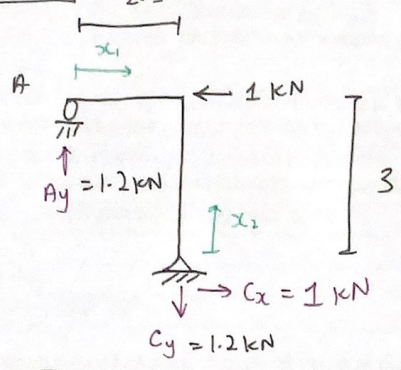 x₁
A
1 kN
Ay = 1.2kN
3
x₂
Cx = 1 kN
Cy = 1.2kN